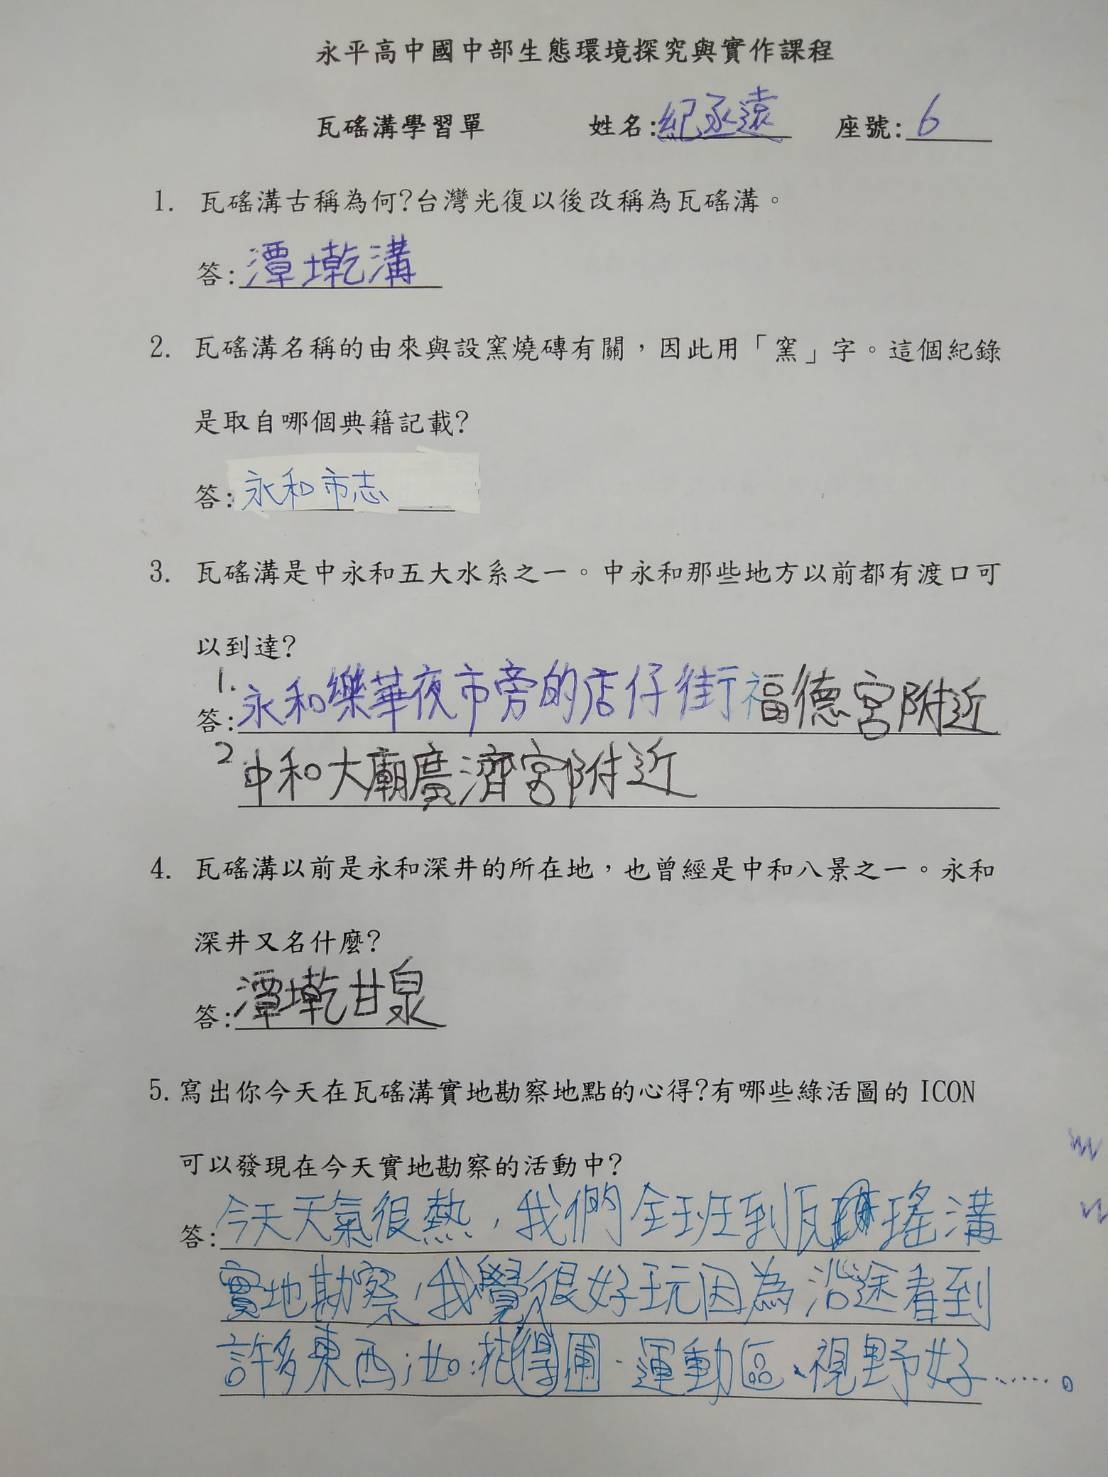 永平高中國中部生態環境探究與實作課程
瓦磘溝學習單 姓名:紀丞遠 座號:6
1. 瓦磘溝古稱為何?台灣光復以後改稱為瓦磘溝。
答:潭墘溝
2. 瓦磘溝名稱的由來與設窯燒磚有關，因此用「窯」字。這個紀錄
是取自哪個典籍記載?
答:永和市志
3. 瓦磘溝是中永和五大水系之一。中永和那些地方以前都有渡口可
以到達?
答:1.永和樂華夜市旁的店仔街福德宮附近
2.中和大廟廣濟宮附近
4. 瓦磘溝以前是永和深井的所在地，也曾經是中和八景之一。永和
深井又名什麼?
答:潭墘甘泉
5. 寫出你今天在瓦磘溝實地勘察地點的心得?有哪些綠活圖的 ICON
可以發現在今天實地勘察的活動中?
答:今天天氣很熱，我們全班到瓦瑤溝
實地勘察，我覺得很好玩因為沿途看到
許多東西;如:花圃、運動區、視野好……。